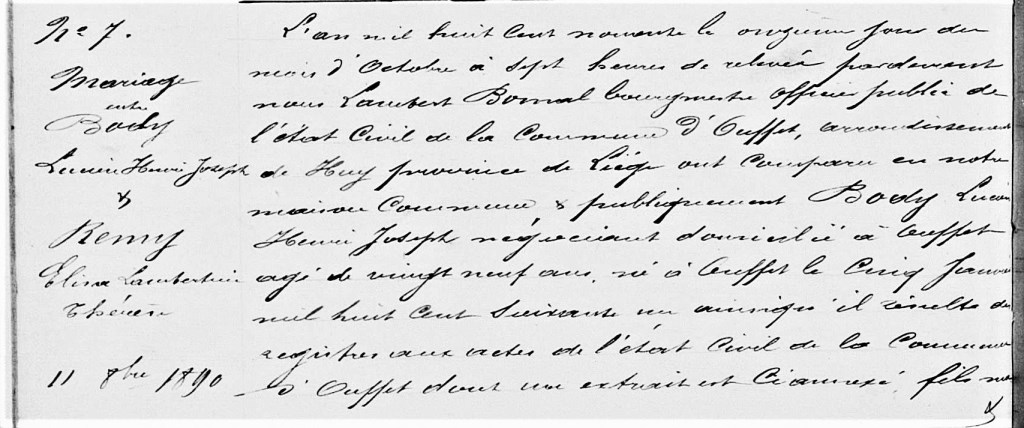 N° 7.
Mariage
entre
Body
Lucien Henri Joseph
&
Remy
Elisa Lambertine
Thérèse
11 8bre 1890
L'an mil huit cent nonante le onzieme jour du
mois d'Octobre à sept heures de relevée pardevant
nous Lambert Bomal bourgmestre officier public de
l'état Civil de la Commune d'Ouffet, arrondissement
de Huy province de Liége ont comparu en notre
maison Commune, & publiquement Body Lucien
Henri Joseph negociant domicilié à Ouffet
agé de vingt neuf ans, né à Ouffet le cinq Janvier
mil huit cent soixante un ainsiqu'il résulte des
registres aux actes de l'état Civil de la Commune
d'Ouffet dont un extrait est ciannexé, fils